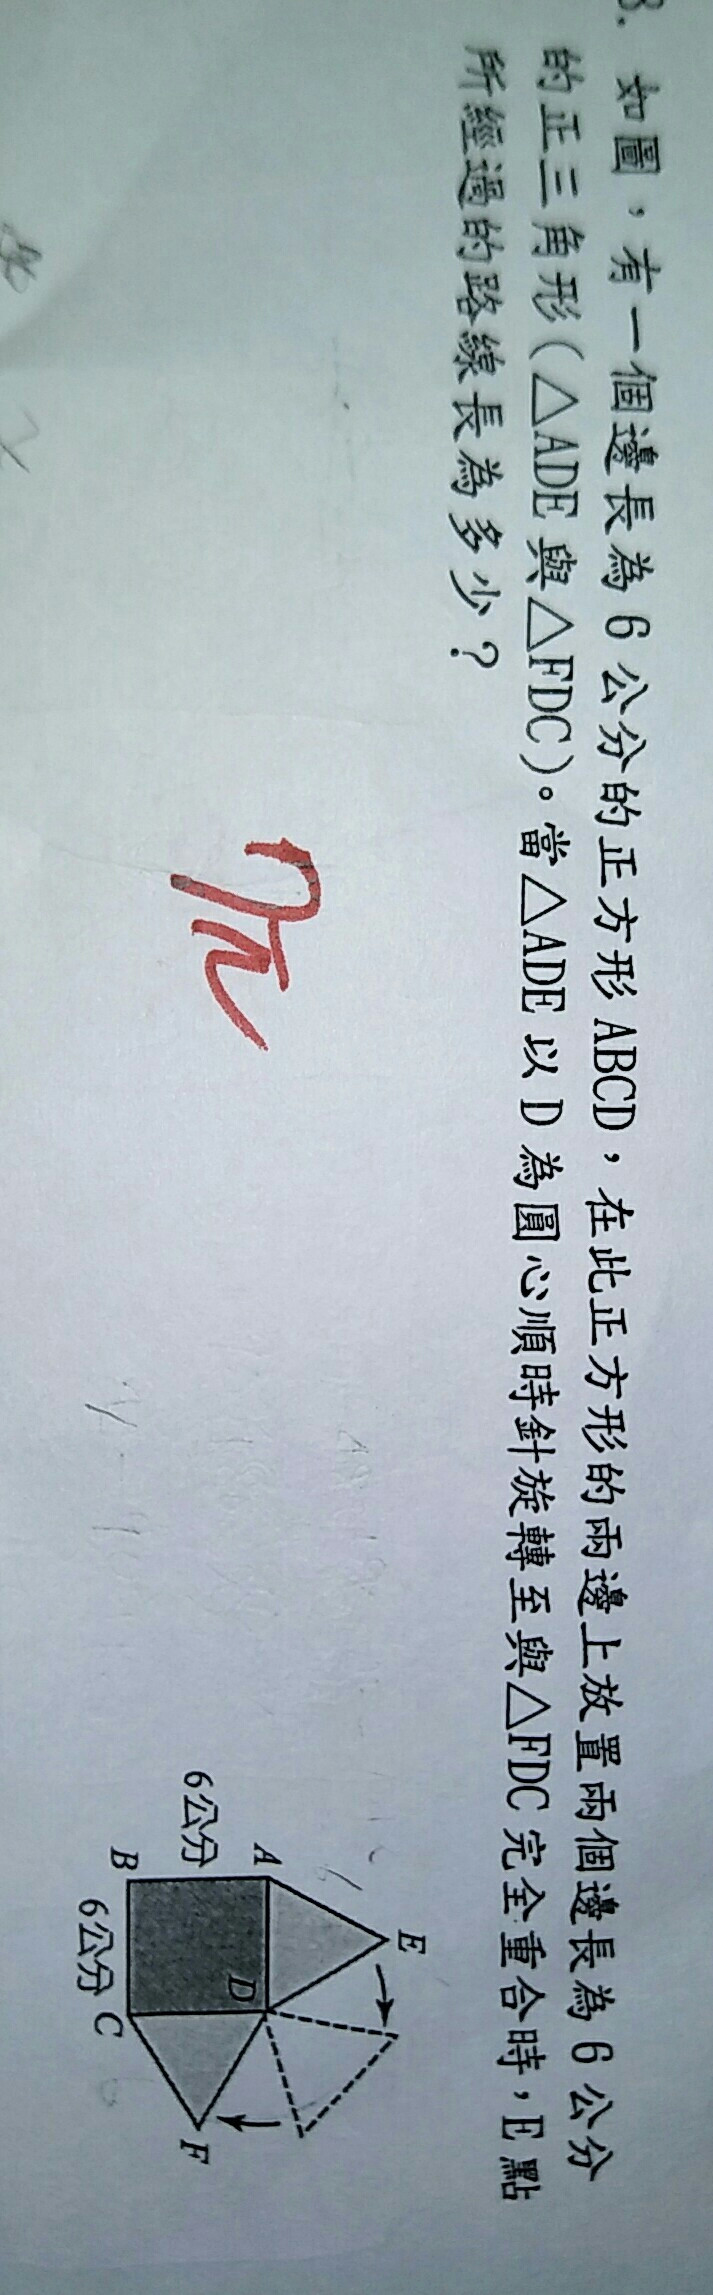 8. 如圖，有一個邊長為 6 公分的正方形 ABCD，在此正方形的兩邊上放置兩個邊長為 6 公分
的正三角形（△ADE 與△FDC）。當△ADE 以 D 為圓心順時針旋轉至與△FDC 完全重合時，E 點
所經過的路線長為多少？
7π
E
A
D
6公分
F
B
C
6公分